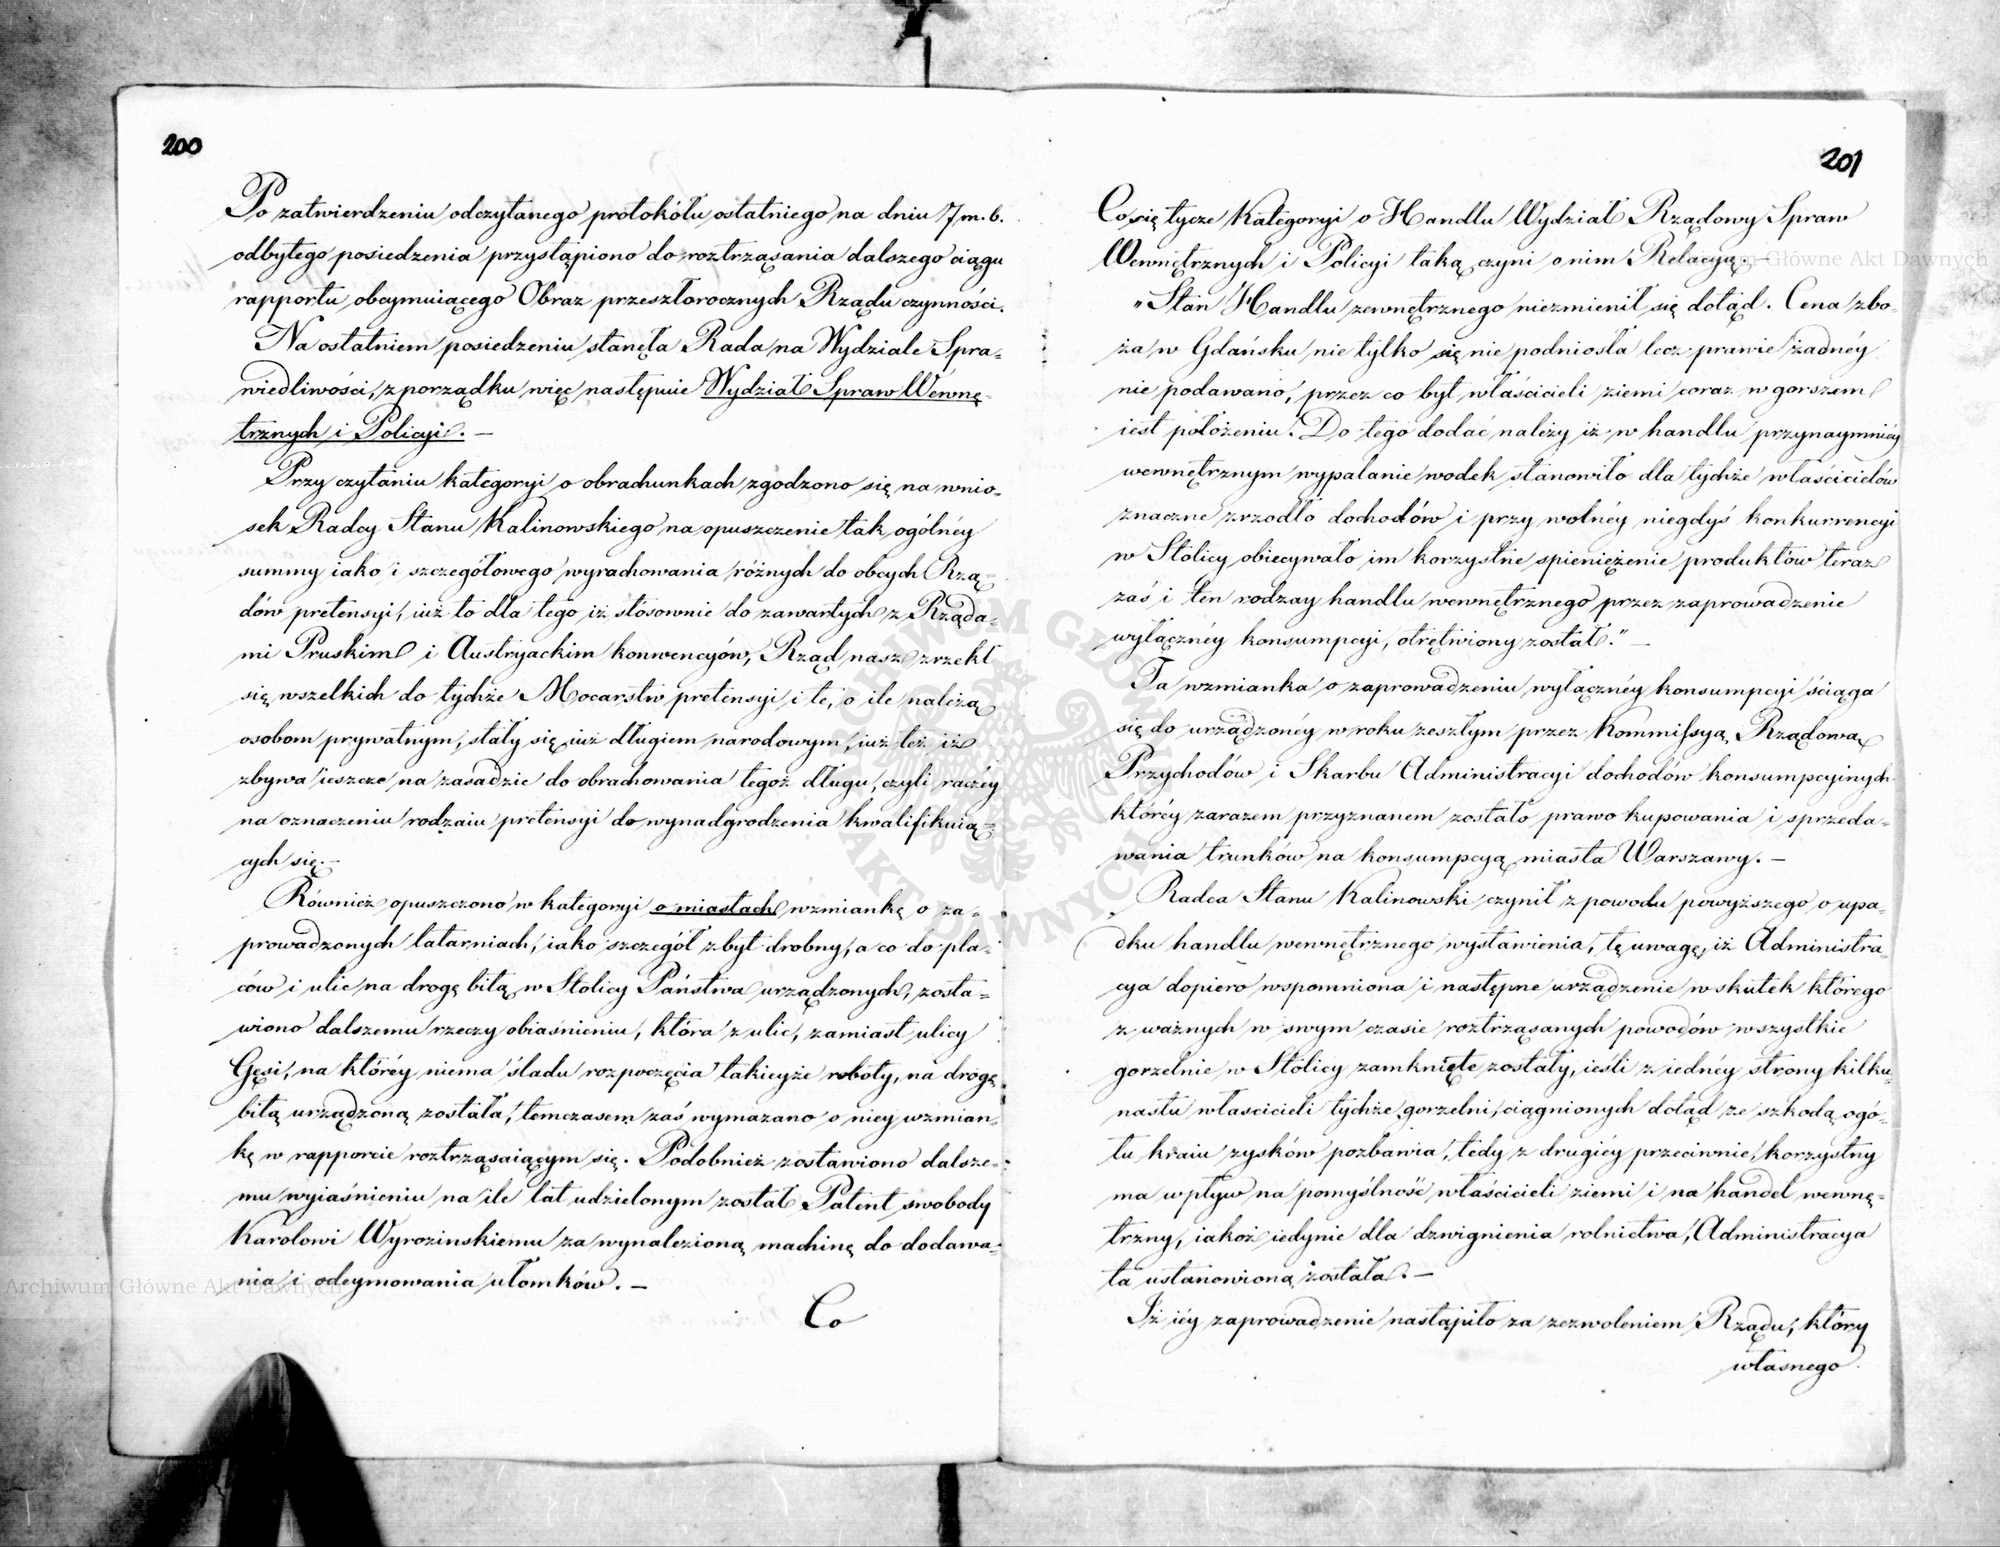 200
Po zatwierdzeniu odczytanego protokółu ostatniego na dniu 7 m. b.
odbytego posiedzenia przystąpiono do roztrząsania dalszego ciągu
rapportu obeymuiącego Obraz przeszłorocznych Rządu czynności.
Na ostatniem posiedzeniu stanęła Rada na Wydziale Spra-
wiedliwości, z porządku więc następuie Wydział Spraw Wewnę-
trznych i Policyi. —
Przy czytaniu kategoryi o obrachunkach zgodzono się na wnio-
sek Radcy Stanu Kalinowskiego na opuszczenie tak ogólnéy
summy iako i szczegółowego wyrachowania różnych do obcych Rzą-
dów pretensyi, iuż to dla tego iż stósownie do zawartych z Rząda-
mi Pruskim i Austryackim konwencyów, Rząd nasz zrzekł
się wszelkich do tychże Mocarstw pretensyi i te, o ile należą
osobom prywatnym, stały się iuż długiem narodowym, iuż też iż
zbywa ieszcze na zasadzie do obrachowania tegoż długu, czyli raczéy
na oznaczeniu rodzaiu pretensyi do wynadgrodzenia kwalifikuią-
cych się. —
Również opuszczono w kategoryi o miastach wzmiankę o za-
prowadzonych latarniach, iako szczegół zbyt drobny, a co do pla-
ców i ulic na drogę bitą w Stolicy Państwa urządzonych, zosta-
wiono dalszemu rzeczy obiaśnieniu, która z ulic, zamiast ulicy
Gęsi, na któréy niema śladu rozpoczęcia takieyże roboty, na drogę
bitą urządzoną została, temczasem zaś wymazano o niey wzmian-
kę w rapporcie roztrząsaiącym się. Podobnież zostawiono dalsze-
mu wyiaśnieniu na ile lat udzielonym został Patent swobody
Karolowi Wyrozinskiemu za wynalezioną machinę do dodawa-
nia i odeymowania ułomków. —
Co
201
Co się tycze Kategoryi o Handlu Wydział Rządowy Spraw
Wewnętrznych i Policyi taką czyni o nim Relacyą —
"Stan Handlu zewnętrznego niezmienił się dotąd. Cena zbo-
ża w Gdańsku nie tylko się nie podniosła lecz prawie żadnéy
nie podawano, przez co byt właścicieli ziemi coraz w gorszem
iest położeniu. Do tego dodać należy iż w handlu przynaymniéy
wewnętrznym wypalanie wodek stanowiło dla tychże właścicielów
znaczne zrzodło dochodów i przy wolnéy niegdyś konkurrencyi
w Stolicy obiecywało im korzystne spieniężenie produktów teraz
zaś i ten rodzay handlu wewnętrznego przez zaprowadzenie
wyłącznéy konsumpcyi, otrętwiony został." —
Ta wzmianka o zaprowadzeniu wyłącznéy konsumpcyi ściąga
się do urządzonéy w roku zeszłym przez Kommissyą Rządową
Przychodów i Skarbu Administracyi dochodów konsumpcyinych
któréy zarazem przyznanem zostało prawo kupowania i sprzeda-
wania trunków na konsumpcyą miasta Warszawy. —
Radca Stanu Kalinowski czynił z powodu powyższego o upa-
dku handlu wewnętrznego wystawienia, tę uwagę, iż Administra-
cya dopiero wspomniona i następne urządzenie w skutek którego
z ważnych w swym czasie roztrząsanych powodów wszystkie
gorzelnie w Stolicy zamknięte zostały, ieśli z iednéy strony kilku-
nastu właścicieli tychże gorzelni, ciągnionych dotąd ze szkodą ogó-
łu kraiu zysków pozbawia, tedy z drugiéy przeciwnie, korzystny
ma wpływ na pomyślność właścicieli ziemi i na handel wewnę-
trzny, iakoż iedynie dla dzwignienia rolnictwa, Administracya
ta ustanowioną została. —
Iż iéy zaprowadzenie nastąpiło za zezwoleniem Rządu, który
własnego
Archiwum Główne Akt Dawnych